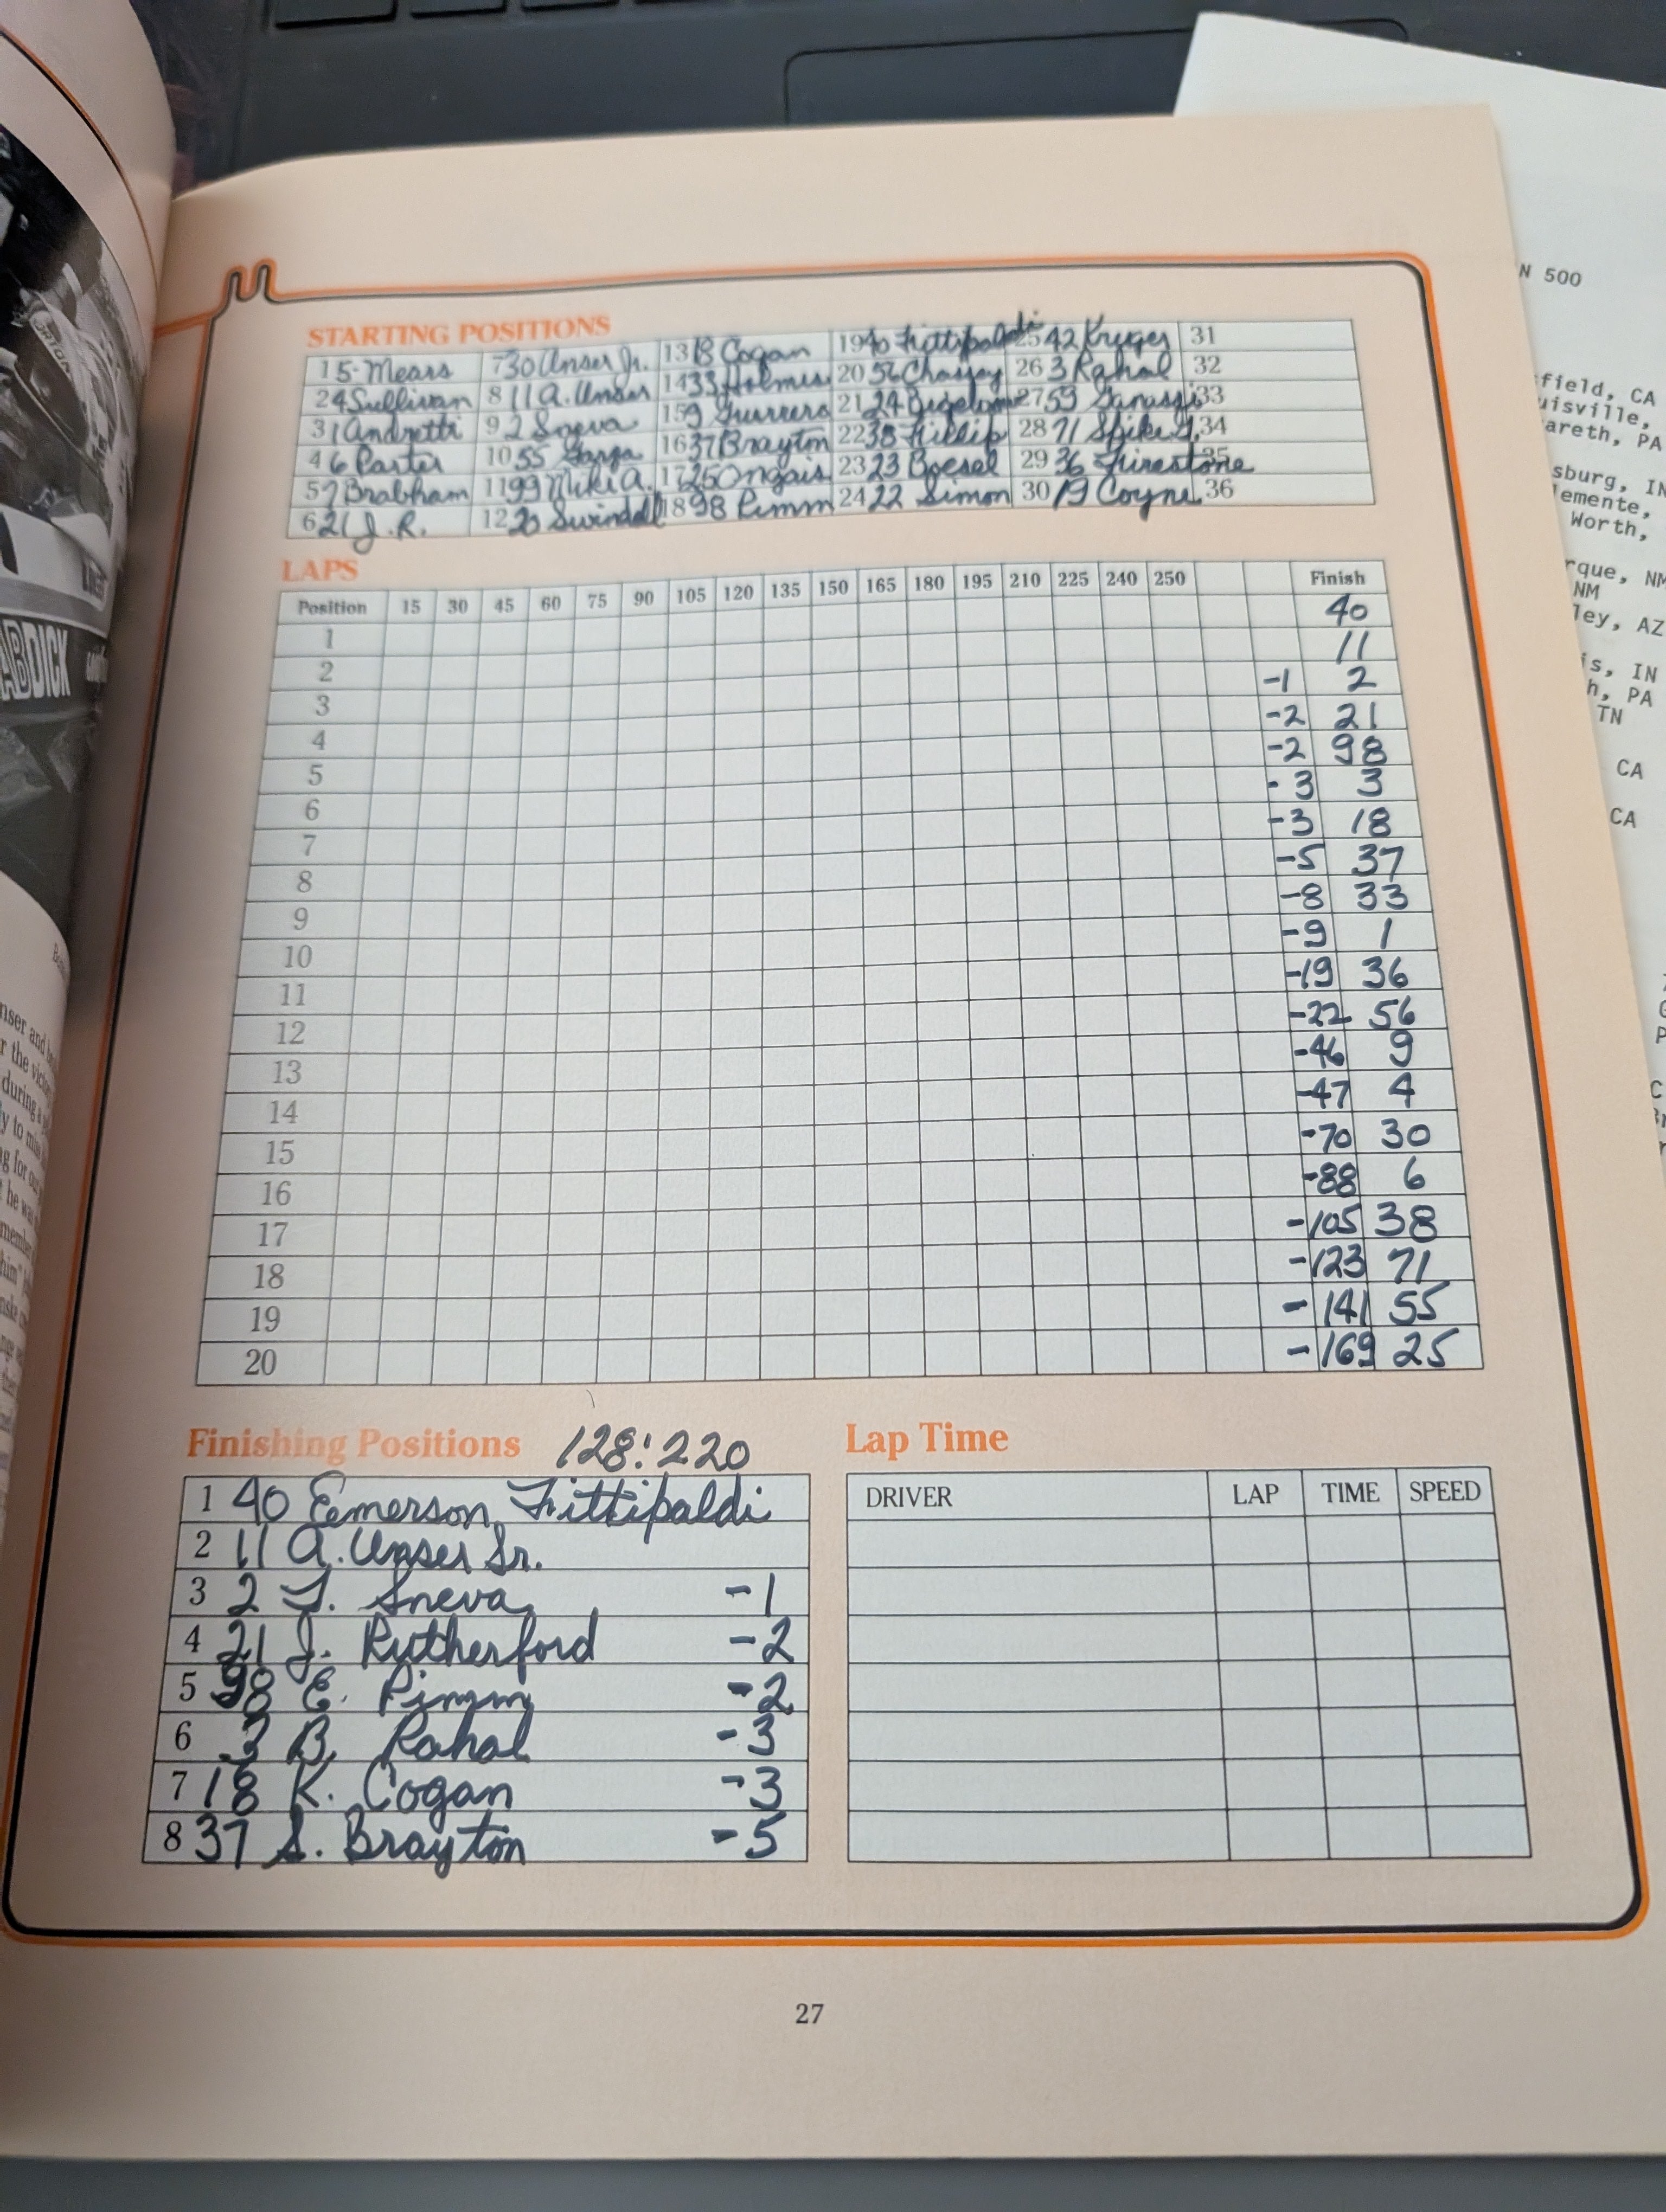 STARTING POSITIONS
1 5 - Mears 7 30 Unser Jr. 13 18 Cogan 19 40 Fittipaldi 25 42 Kruger 31
2 4 Sullivan 8 11 A. Unser 14 33 Holmes 20 56 Chassey 26 3 Rahal 32
3 1 Andretti 9 2 Sneva 15 9 Guerrero 21 24 Bigelow 27 59 Ganassi 33
4 6 Carter 10 55 Garza 16 37 Brayton 22 38 Fillip 28 71 Spike G. 34
5 7 Brabham 11 99 Mike A. 17 25 Ongais 23 23 Boesel 29 36 Firestone 35
6 21 J.R. 12 20 Swindell 18 98 Pimm 24 22 Simon 30 19 Coyne 36
LAPS
Position 15 30 45 60 75 90 105 120 135 150 165 180 195 210 225 240 250 Finish
1 40
2 11
3 -1 2
4 -2 21
5 -2 98
6 -3 3
7 -3 18
8 -5 37
9 -8 33
10 -9 1
11 -19 36
12 -22 56
13 -46 9
14 -47 4
15 -70 30
16 -88 6
17 -105 38
18 -123 71
19 -141 55
20 -169 25
Finishing Positions 128:220
1 40 Emerson Fittipaldi
2 11 A. Unser Sr.
3 2 T. Sneva -1
4 21 J. Rutherford -2
5 98 E. Pimm -2
6 3 B. Rahal -3
7 18 K. Cogan -3
8 37 S. Brayton -5
Lap Time
DRIVER LAP TIME SPEED
27
N 500
field, CA
uisville,
areth, PA
sburg, IN
lemente,
Worth,
rque, NM
NM
ley, AZ
is, IN
h, PA
TN
CA
CA
ABDICK
nser and
r the
during a
y to miss
g for our
he was
him"